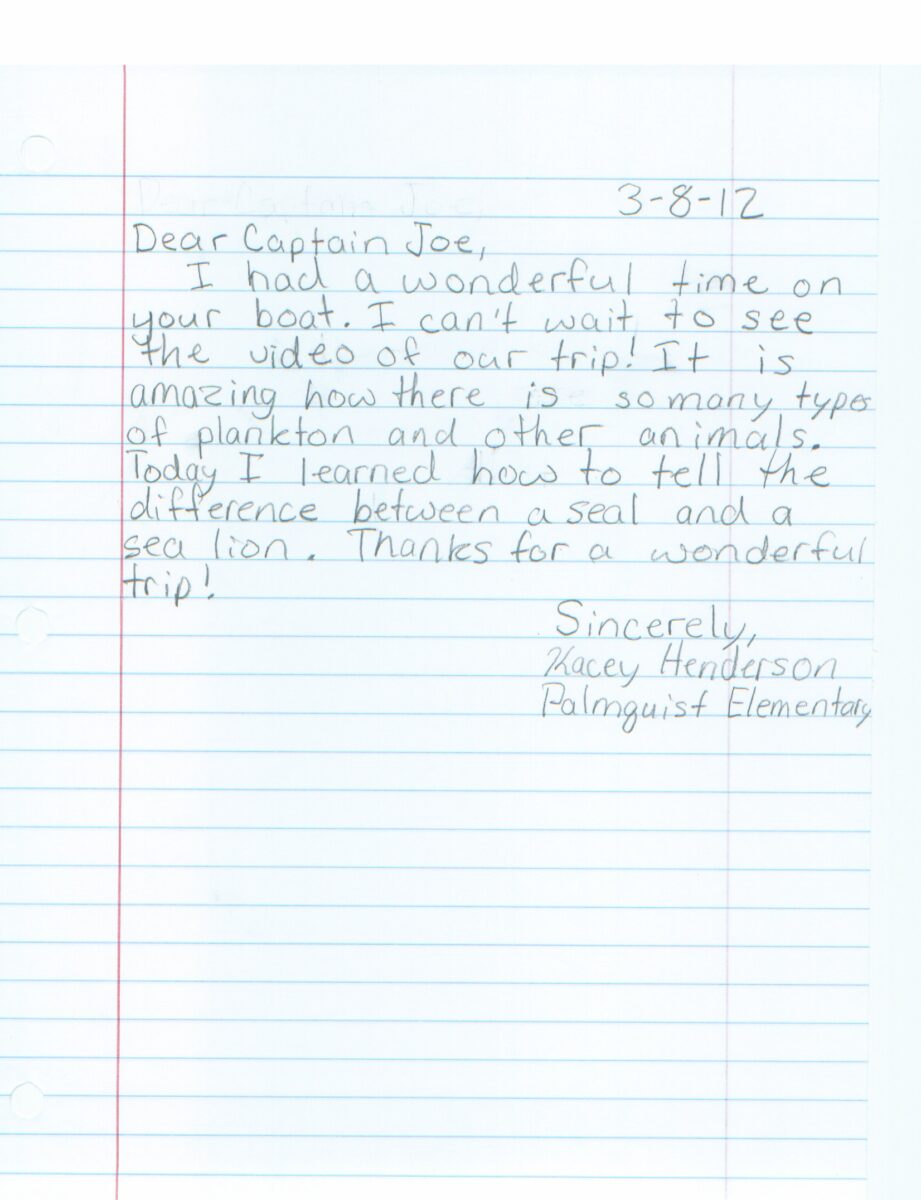 3-8-12
Dear Captain Joe,
I had a wonderful time on
your boat. I can't wait to see
the video of our trip! It is
amazing how there is so many typs
of plankton and other animals.
Today I learned how to tell the
difference between a seal and a
sea lion. Thanks for a wonderful
trip!
Sincerely,
Kacey Henderson
Palmquist Elementary